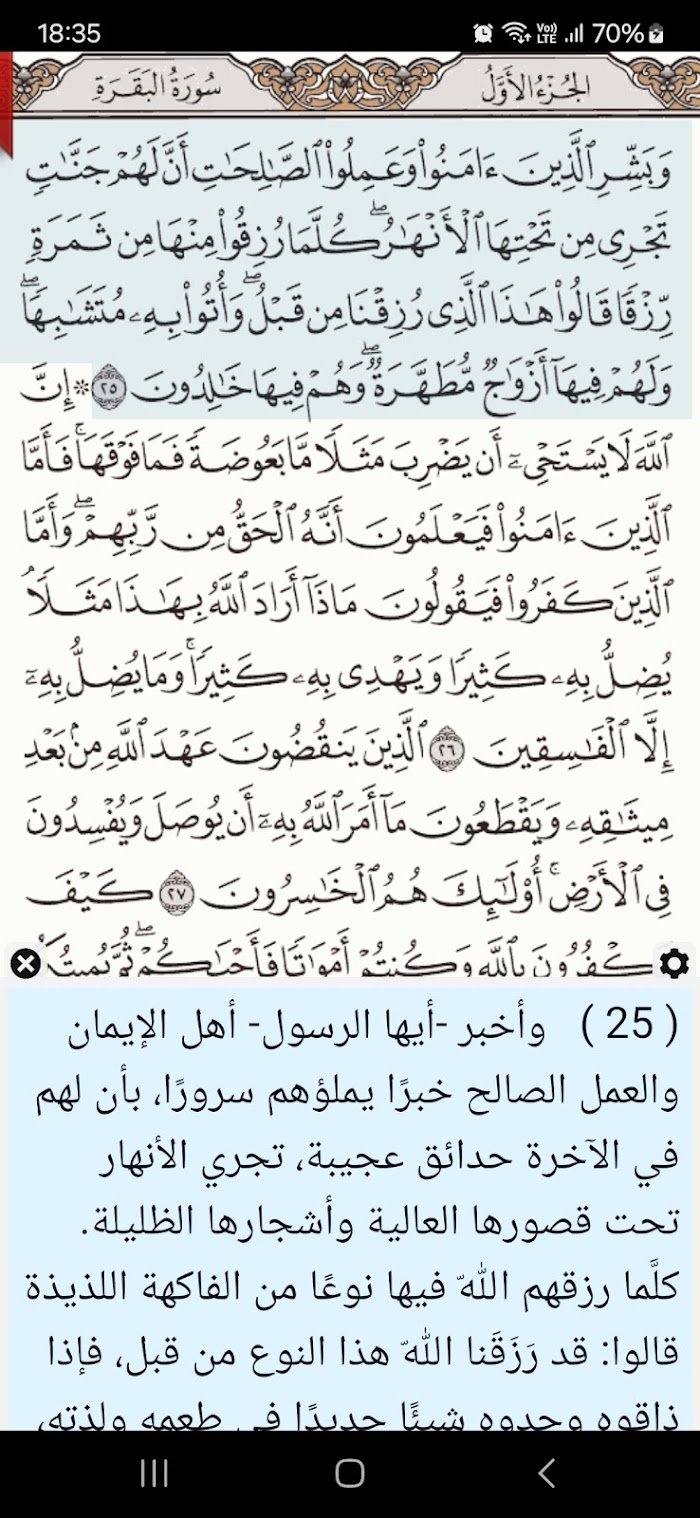 18:35
Vo)) LTE 70%
سُورَةُ البَقَرَةِ
الجُزْءُ الأَوَّلُ
وَبَشِّرِ ٱلَّذِينَ ءَامَنُوا۟ وَعَمِلُوا۟ ٱلصَّـٰلِحَـٰتِ أَنَّ لَهُمْ جَنَّـٰتٍ
تَجْرِى مِن تَحْتِهَا ٱلْأَنْهَـٰرُ ۖ كُلَّمَا رُزِقُوا۟ مِنْهَا مِن ثَمَرَةٍ
رِّزْقًا قَالُوا۟ هَـٰذَا ٱلَّذِى رُزِقْنَا مِن قَبْلُ ۖ وَأُتُوا۟ بِهِۦ مُتَشَـٰبِهًا ۖ
وَلَهُمْ فِيهَآ أَزْوَٰجٌ مُّطَهَّرَةٌ ۖ وَهُمْ فِيهَا خَـٰلِدُونَ ٢٥ ۞ إِنَّ
ٱللَّهَ لَا يَسْتَحْىِۦٓ أَن يَضْرِبَ مَثَلًا مَّا بَعُوضَةً فَمَا فَوْقَهَا ۚ فَأَمَّا
ٱلَّذِينَ ءَامَنُوا۟ فَيَعْلَمُونَ أَنَّهُ ٱلْحَقُّ مِن رَّبِّهِمْ ۖ وَأَمَّا
ٱلَّذِينَ كَفَرُوا۟ فَيَقُولُونَ مَاذَآ أَرَادَ ٱللَّهُ بِهَـٰذَا مَثَلًا ۘ
يُضِلُّ بِهِۦ كَثِيرًا وَيَهْدِى بِهِۦ كَثِيرًا ۚ وَمَا يُضِلُّ بِهِۦٓ
إِلَّا ٱلْفَـٰسِقِينَ ٢٦ ٱلَّذِينَ يَنقُضُونَ عَهْدَ ٱللَّهِ مِنۢ بَعْدِ
مِيثَـٰقِهِۦ وَيَقْطَعُونَ مَآ أَمَرَ ٱللَّهُ بِهِۦٓ أَن يُوصَلَ وَيُفْسِدُونَ
فِى ٱلْأَرْضِ ۚ أُو۟لَـٰٓئِكَ هُمُ ٱلْخَـٰسِرُونَ ٢٧ كَيْفَ
تَكْفُرُونَ بِٱللَّهِ وَكُنتُمْ أَمْوَٰتًا فَأَحْيَـٰكُمْ ۖ ثُمَّ يُمِيتُكُمْ
( 25 ) وأخبر -أيها الرسول- أهل الإيمان
والعمل الصالح خبرًا يملؤهم سرورًا، بأن لهم
في الآخرة حدائق عجيبة، تجري الأنهار
تحت قصورها العالية وأشجارها الظليلة.
كلَّما رزقهم اللهّ فيها نوعًا من الفاكهة اللذيذة
قالوا: قد رَزَقَنا اللهّ هذا النوع من قبل، فإذا
ذاقوه وجدوه شيئًا جديدًا في طعمه ولذته،